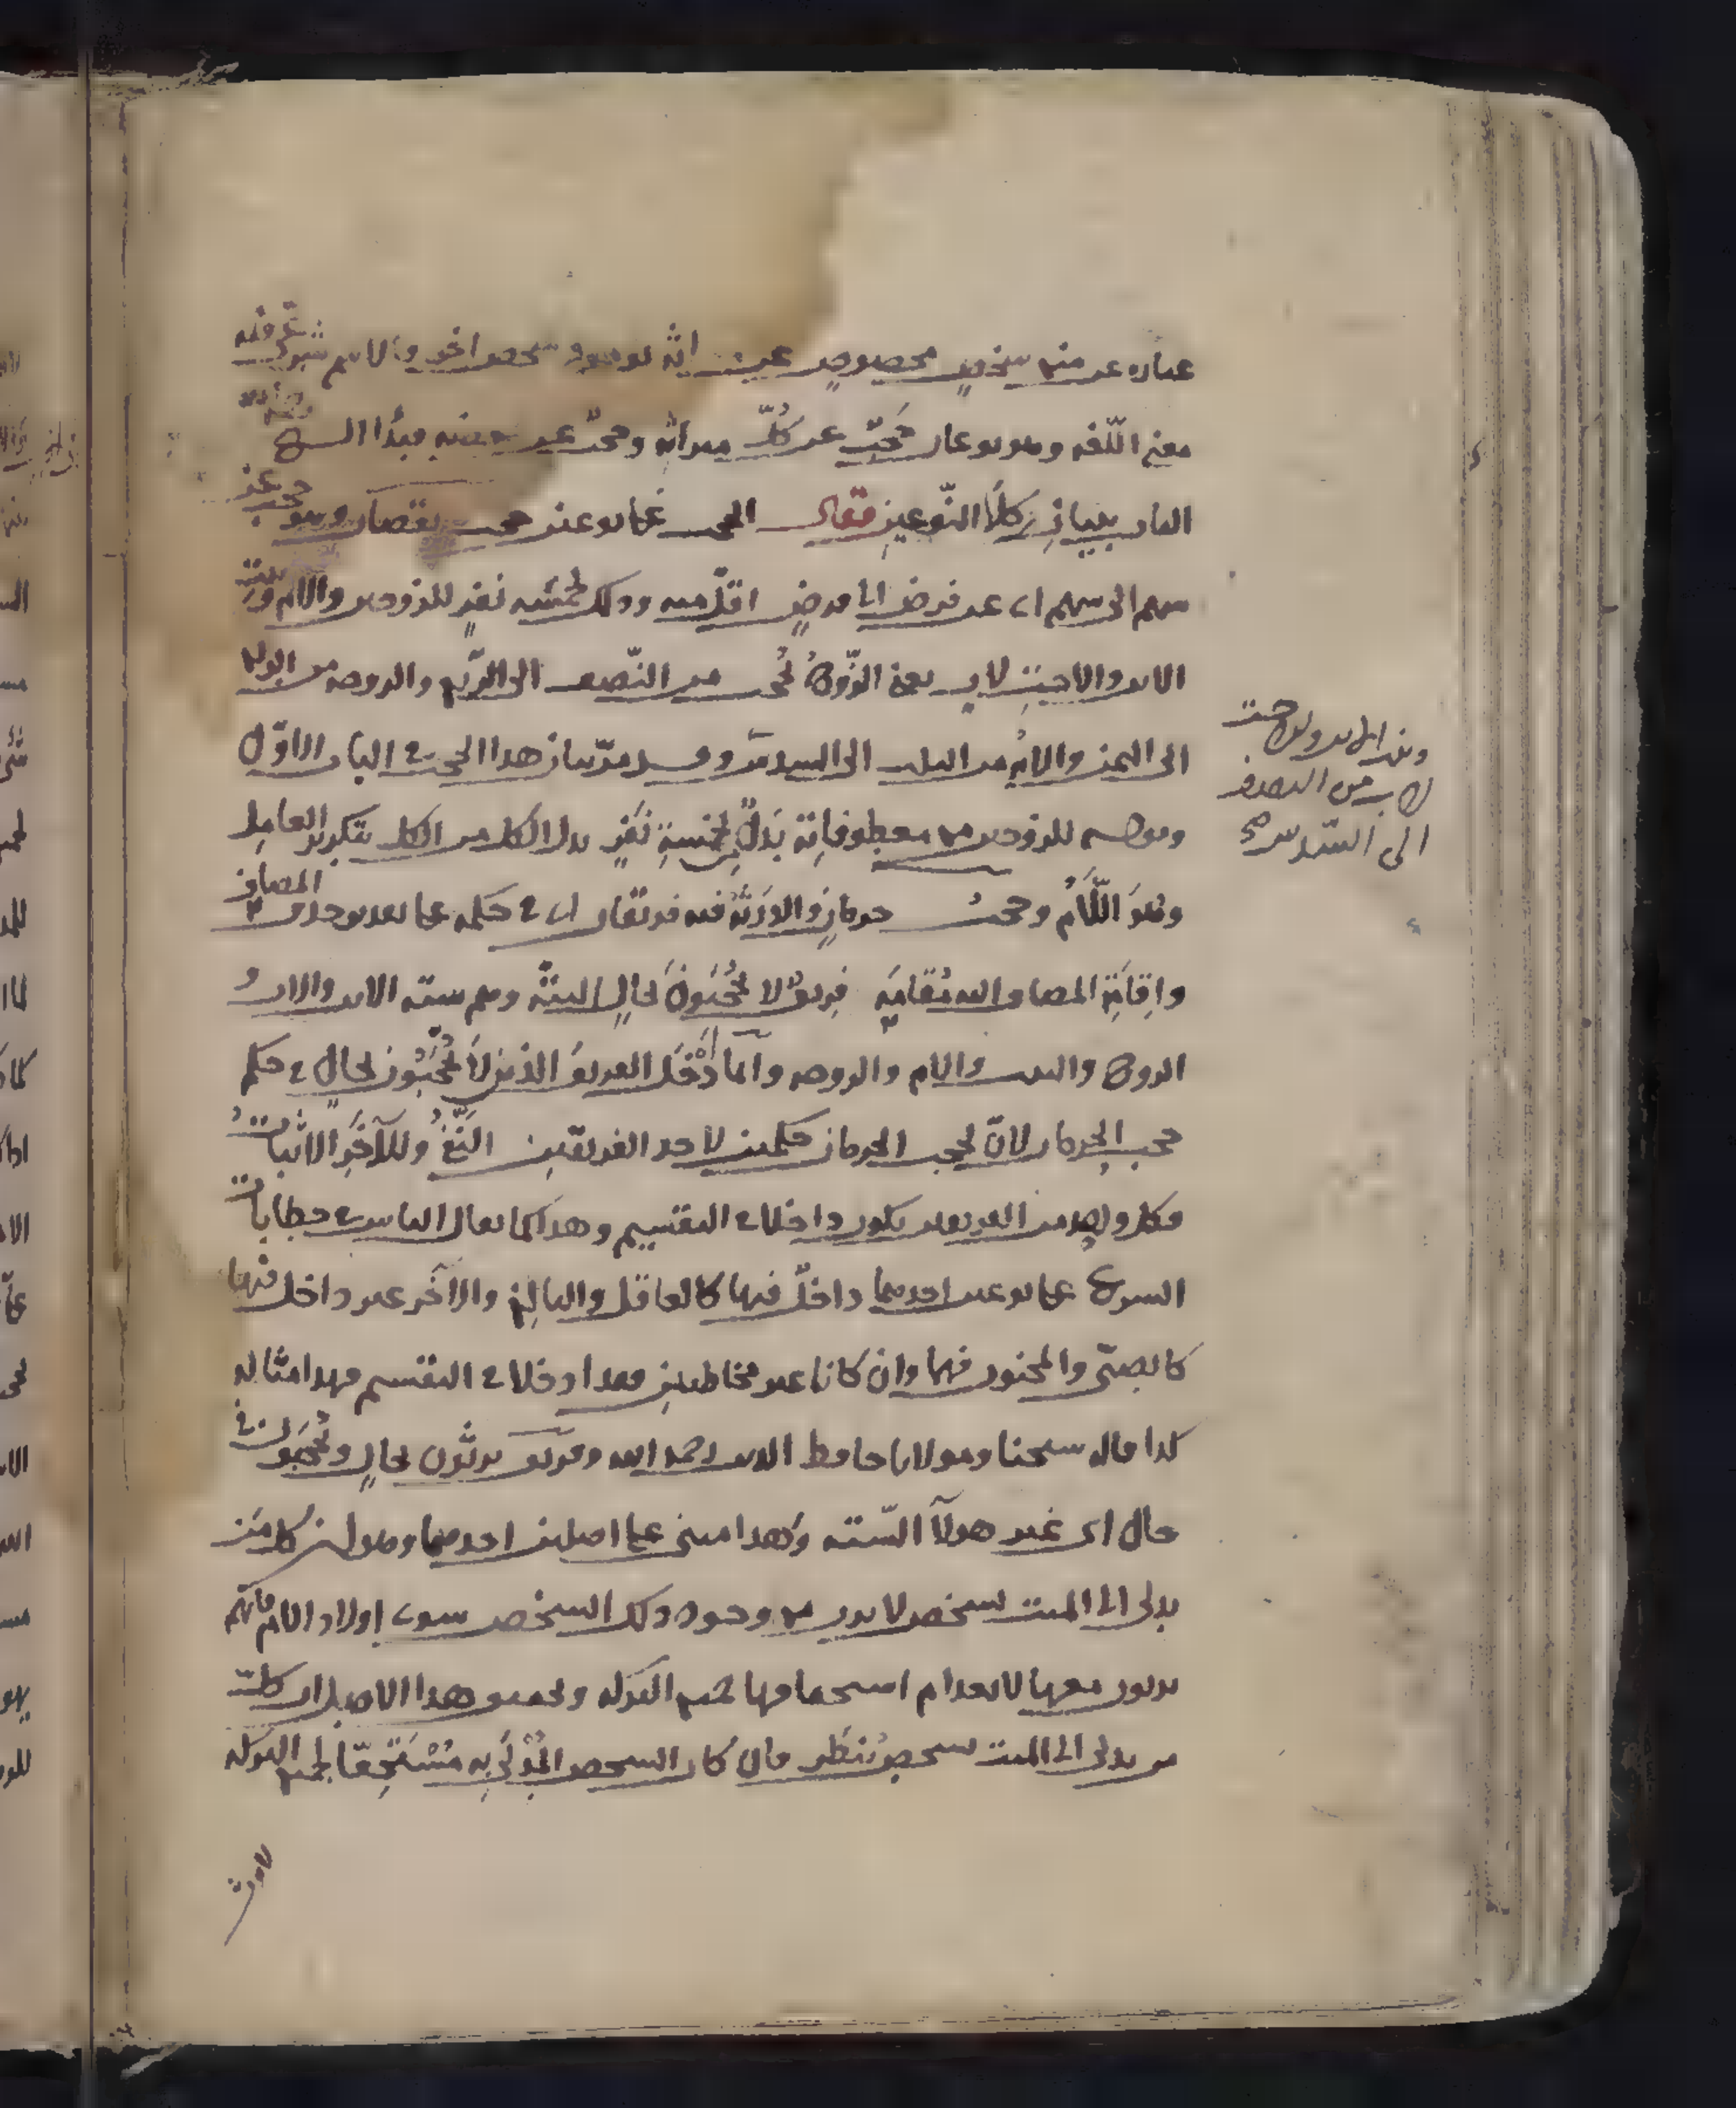 عبارة عن منع شخص مخصوص عن ارثه بوجود شخص اخر والاسم شرعي فيه
معنى اللغة وهو نوعان حجب عن كل ميراثه وحجب عن بعضه فبدأ الشيخ
الباب ببيان كلا النوعين فقال الحجب على نوعين حجب نقصان وهو حجب عن
سهم الى سهم اى عن فرض الى فرض اقل منه وذلك لخمسة نفر للزوجين والام وبنت
الابن والاخت لاب يعنى الزوج يحجب من النصف الى الربع والزوجة من الربع
الى الثمن والام من الثلث الى السدس وقد مر بيان هذا الحجب فى الباب الاول
وقوله للزوجين مع معطوفاته بدل لخمسة نفر بدل الكل من الكل بتكرير العامل
وهو اللام وحجب حرمان والورثة فيه فريقان اى فى حكمه على تقدير حذف المضاف
واقامة المضاف اليه مقامه فريق لا يحجبون بحال البتة وهم ستة الابن والاب و
الزوج والبنت والام والزوجة وانما ادخل الفريق الذين لا يحجبون بحال فى حكم
حجب الحرمان لان لحجب الحرمان حكمين لاحد الفريقين النفى وللآخر الاثبات
فكل واحد من الفريقين يكون داخلا فى التقسيم وهذا كما يقال الناس فى خطابات
الشرع على نوعين احدهما داخل فيها كالعاقل والبالغ والآخر غير داخل فيها
كالصبى والمجنون فهما وان كانا غير مخاطبين فقد ادخلا فى التقسيم فهذا مثاله
كذا قاله شيخنا ومولانا حافظ الدين رحمه الله وفريق يرثون بحال ويحجبون فى
حال اى غير هولآ الستة وهذا مبنى على اصلين احدهما وهو ان كل من
يدلى الى الميت بشخص لا يرث مع وجود ذلك الشخص سوى اولاد الام فانهم
يرثون معها لانعدام استحقاقها لجميع التركة وتحقيق هذا الاصل ان كل
من يدلى الى الميت بشخص ينظر فان كان الشخص المدلى به مستحقا لجميع التركة
لا يرث
وبنت الابن والاخت
لاب من النصف
الى السدس صح